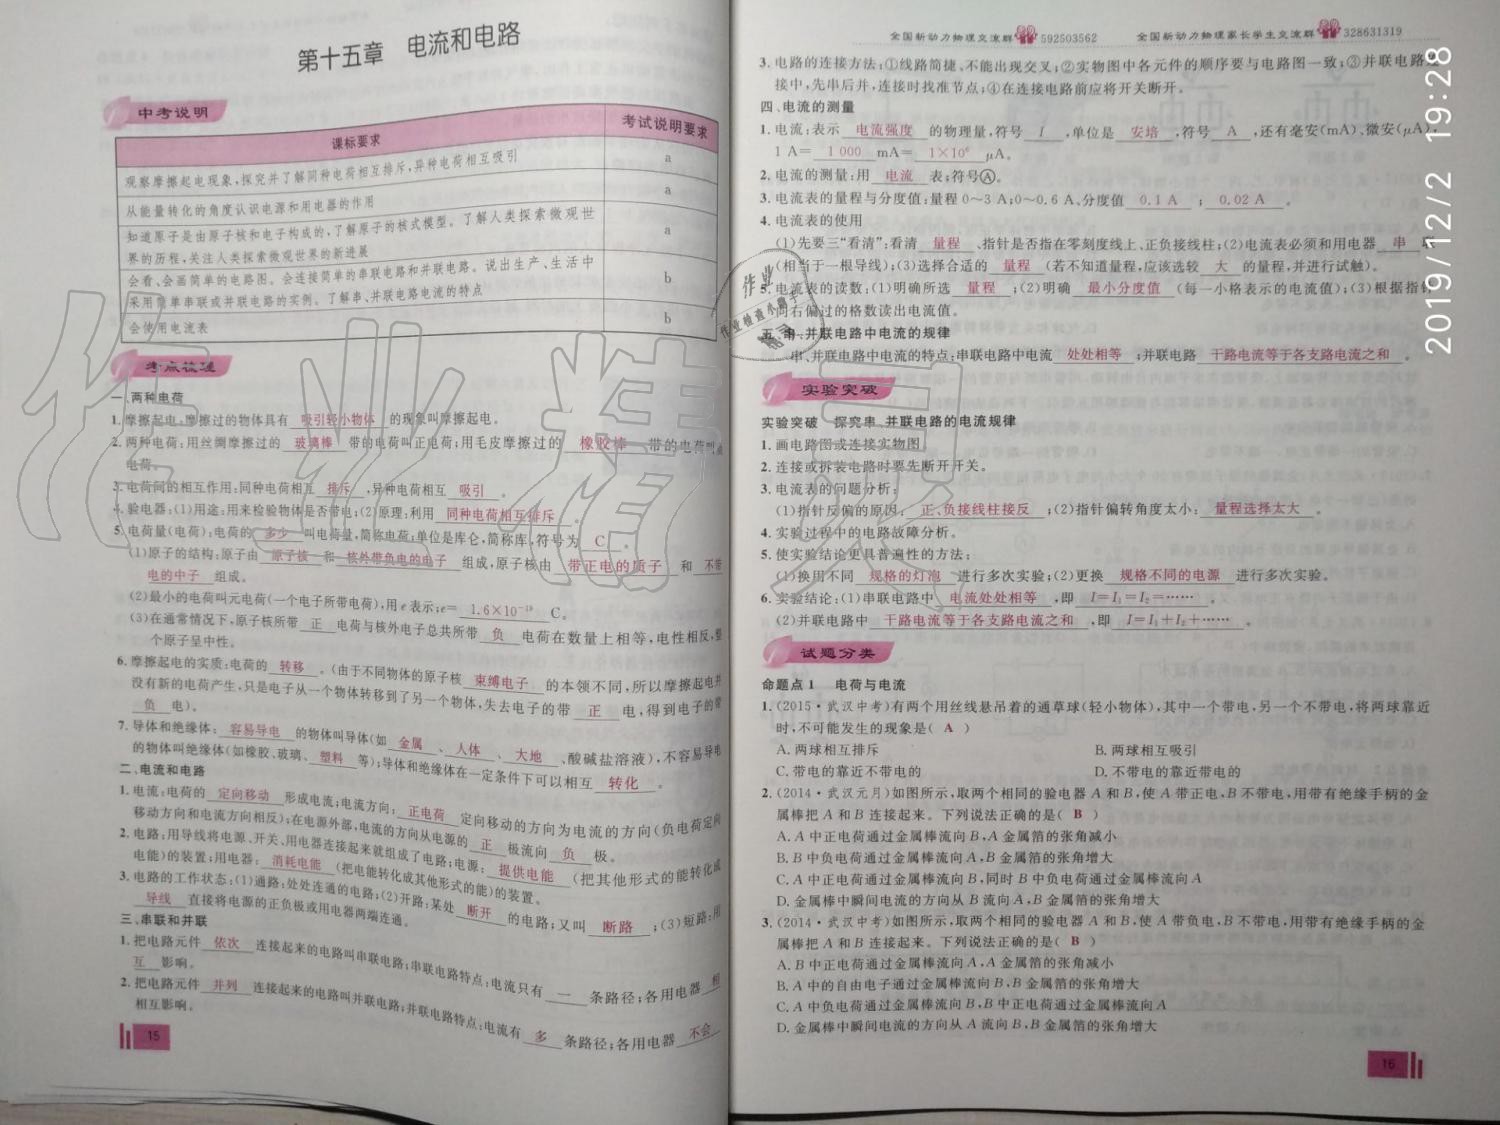 第十五章 电流和电路
中考说明
课标要求 考试说明要求
观察摩擦起电现象,探究并了解同种电荷相互排斥,异种电荷相互吸引 a
从能量转化的角度认识电源和用电器的作用 a
知道原子是由原子核和电子构成的,了解原子的核式模型。了解人类探索微观世
界的历程,关注人类探索微观世界的新进展 a
会看、会画简单的电路图。会连接简单的串联电路和并联电路。说出生产、生活中
采用简单串联或并联电路的实例。了解串、并联电路电流的特点 b
会使用电流表 b
考点梳理
一、两种电荷
1.摩擦起电:摩擦过的物体具有 吸引轻小物体 的现象叫摩擦起电。
2.两种电荷:用丝绸摩擦过的 玻璃棒 带的电荷叫正电荷;用毛皮摩擦过的 橡胶棒 带的电荷叫负
电荷。
3.电荷间的相互作用:同种电荷相互 排斥 ,异种电荷相互 吸引 。
4.验电器:(1)用途:用来检验物体是否带电;(2)原理:利用 同种电荷相互排斥 。
5.电荷量(电荷):电荷的 多少 叫电荷量,简称电荷;单位是库仑,简称库,符号为 C 。
(1)原子的结构:原子由 原子核 和 核外带负电的电子 组成,原子核由 带正电的质子 和 不带
电的中子 组成。
(2)最小的电荷叫元电荷(一个电子所带电荷),用e表示;e= 1.6×10⁻¹⁹ C。
(3)在通常情况下,原子核所带 正 电荷与核外电子总共所带 负 电荷在数量上相等,电性相反,整
个原子呈中性。
6.摩擦起电的实质:电荷的 转移 。(由于不同物体的原子核 束缚电子 的本领不同,所以摩擦起电并
没有新的电荷产生,只是电子从一个物体转移到了另一个物体,失去电子的带 正 电,得到电子的带
负 电)。
7.导体和绝缘体: 容易导电 的物体叫导体(如 金属 、 人体 、 大地 、酸碱盐溶液),不容易导电
的物体叫绝缘体(如橡胶、玻璃、 塑料 等);导体和绝缘体在一定条件下可以相互 转化 。
二、电流和电路
1.电流:电荷的 定向移动 形成电流;电流方向: 正电荷 定向移动的方向为电流的方向(负电荷定向
移动方向和电流方向相反);在电源外部,电流的方向从电源的 正 极流向 负 极。
2.电路:用导线将电源、开关、用电器连接起来就组成了电路;电源: 提供电能 (把其他形式的能转化成
电能)的装置;用电器: 消耗电能 (把电能转化成其他形式的能)的装置。
3.电路的工作状态:(1)通路:处处连通的电路;(2)开路:某处 断开 的电路;又叫 断路 ;(3)短路:用
导线 直接将电源的正负极或用电器两端连通。
三、串联和并联
1.把电路元件 依次 连接起来的电路叫串联电路;串联电路特点:电流只有 一 条路径;各用电器 相
互 影响。
2.把电路元件 并列 连接起来的电路叫并联电路;并联电路特点:电流有 多 条路径;各用电器 不会
相互影响。
15
全国新动力物理交流群592503562 全国新动力物理家长学生交流群328631319
3.电路的连接方法:①线路简捷、不能出现交叉;②实物图中各元件的顺序要与电路图一致;③并联电路连
接中,先串后并,连接时找准节点;④在连接电路前应将开关断开。
四、电流的测量
1.电流:表示 电流强度 的物理量,符号 I ,单位是 安培 ,符号 A ,还有毫安(mA)、微安(μA),
1 A= 1 000 mA= 1×10⁶ μA。
2.电流的测量:用 电流 表;符号Ⓐ。
3.电流表的量程与分度值:量程0~3 A;0~0.6 A,分度值 0.1 A ; 0.02 A 。
4.电流表的使用
(1)先要三“看清”:看清 量程 、指针是否指在零刻度线上、正负接线柱;(2)电流表必须和用电器 串 联
(相当于一根导线);(3)选择合适的 量程 (若不知道量程,应该选较 大 的量程,并进行试触)。
5.电流表的读数:(1)明确所选 量程 ;(2)明确 最小分度值 (每一小格表示的电流值);(3)根据指针
向右偏过的格数读出电流值。
五、串、并联电路中电流的规律
串、并联电路中电流的特点:串联电路中电流 处处相等 ;并联电路 干路电流等于各支路电流之和 。
实验突破
实验突破 探究串、并联电路的电流规律
1.画电路图或连接实物图
2.连接或拆装电路时要先断开开关。
3.电流表的问题分析:
(1)指针反偏的原因: 正、负接线柱接反 ;(2)指针偏转角度太小: 量程选择太大 。
4.实验过程中的电路故障分析。
5.使实验结论更具普遍性的方法:
(1)换用不同 规格的灯泡 进行多次实验;(2)更换 规格不同的电源 进行多次实验。
6.实验结论:(1)串联电路中 电流处处相等 ,即 I=I₁=I₂=…… 。
(2)并联电路中 干路电流等于各支路电流之和 ,即 I=I₁+I₂+…… 。
试题分类
命题点1 电荷与电流
1.(2015·武汉中考)有两个用丝线悬吊着的通草球(轻小物体),其中一个带电,另一个不带电,将两球靠近
时,不可能发生的现象是( A )
A.两球相互排斥 B.两球相互吸引
C.带电的靠近不带电的 D.不带电的靠近带电的
2.(2014·武汉元月)如图所示,取两个相同的验电器A和B,使A带正电,B不带电,用带有绝缘手柄的金
属棒把A和B连接起来。下列说法正确的是( B )
A.A中正电荷通过金属棒流向B,A金属箔的张角减小
B.B中负电荷通过金属棒流向A,B金属箔的张角增大
C.A中正电荷通过金属棒流向B,同时B中负电荷通过金属棒流向A
D.金属棒中瞬间电流的方向从B流向A,B金属箔的张角增大
3.(2014·武汉中考)如图所示,取两个相同的验电器A和B,使A带负电,B不带电,用带有绝缘手柄的金
属棒把A和B连接起来。下列说法正确的是( B )
A.B中正电荷通过金属棒流向A,A金属箔的张角减小
B.A中的自由电子通过金属棒流向B,B金属箔的张角增大
C.A中负电荷通过金属棒流向B,B中正电荷通过金属棒流向A
D.金属棒中瞬间电流的方向从A流向B,B金属箔的张角增大
16
2019/12/2 19:28
作业精灵
作业
作业检查小助手